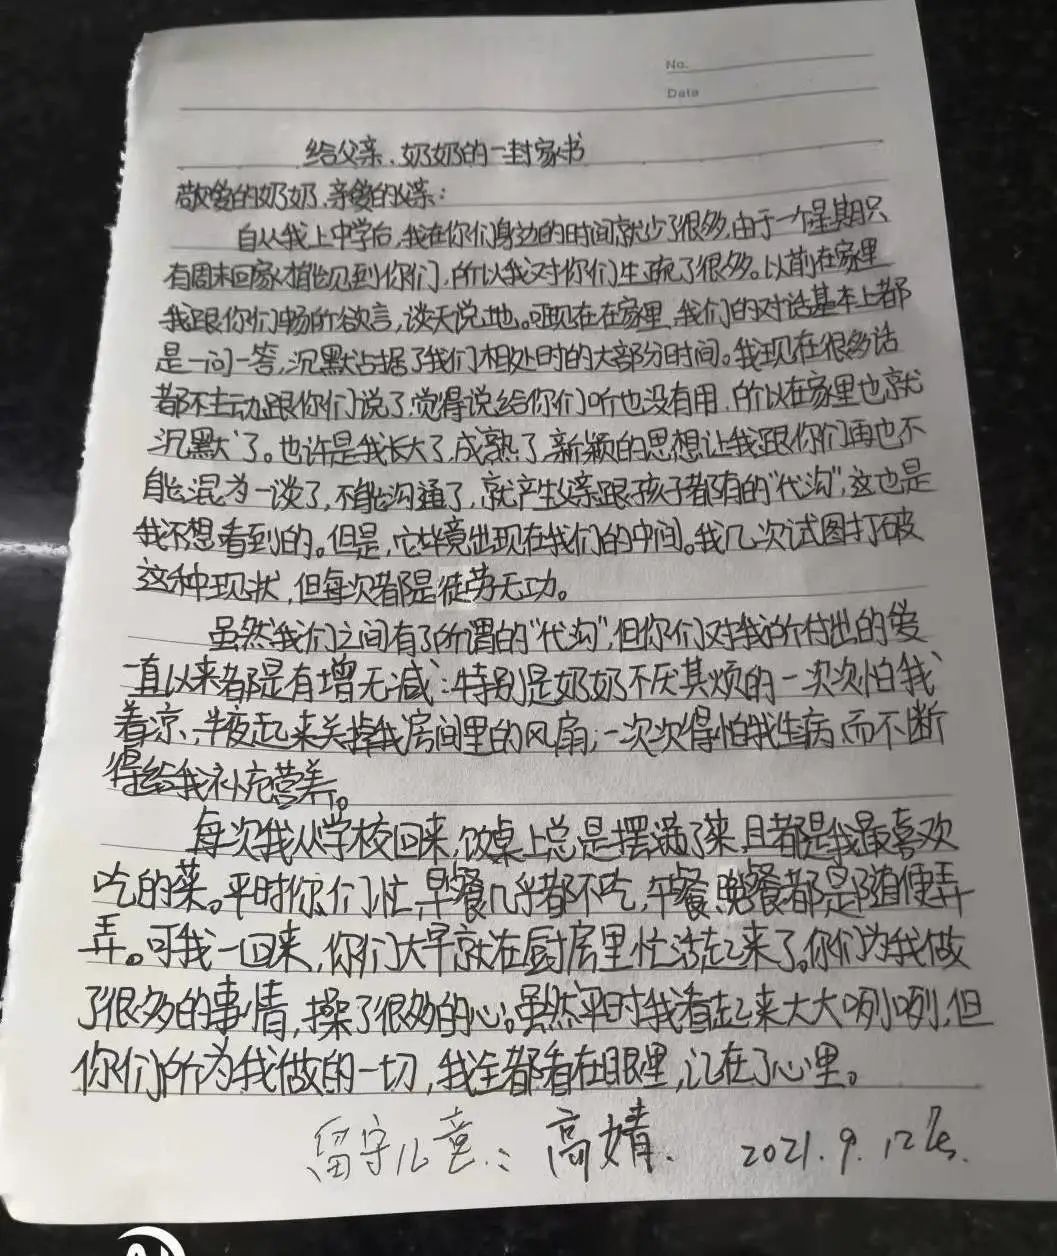 No.
Date
给父亲、奶奶的一封家书
敬爱的奶奶、亲爱的父亲：
自从我上中学后，我在你们身边的时间就少了很多，由于一个星期只
有周末回家才能见到你们，所以我对你们生疏了很多。以前在家里
我跟你们畅所欲言，谈天说地。可现在在家里，我们的对话基本上都
是一问一答，沉默占据了我们相处时的大部分时间。我现在很多话
都不主动跟你们说了，觉得说给你们听也没有用，所以在家里也就
沉默了。也许是我长大了，成熟了，新颖的思想让我跟你们再也不
能混为一谈了，不能沟通了，就产生父亲跟孩子都有的“代沟”，这也是
我不想看到的。但是，它毕竟出现在我们的中间。我几次试图打破
这种现状，但每次都是徒劳无功。
虽然我们之间有了所谓的“代沟”，但你们对我所付出的爱
一直以来都是有增无减：特别是奶奶不厌其烦的一次次怕我
着凉，半夜起来关掉我房间里的风扇；一次次得怕我生病，而不断
得给我补充营养。
每次我从学校回来，饭桌上总是摆满了菜，且都是我最喜欢
吃的菜。平时你们忙，早餐几乎都不吃，午餐、晚餐都是随便弄
弄。可我一回来，你们大早就在厨房里忙活起来了。你们为我做
了很多的事情，操了很多的心。虽然平时我看起来大大咧咧，但
你们所为我做的一切，我全都看在眼里，记在了心里。
留守儿童：高婧 2021.9.12